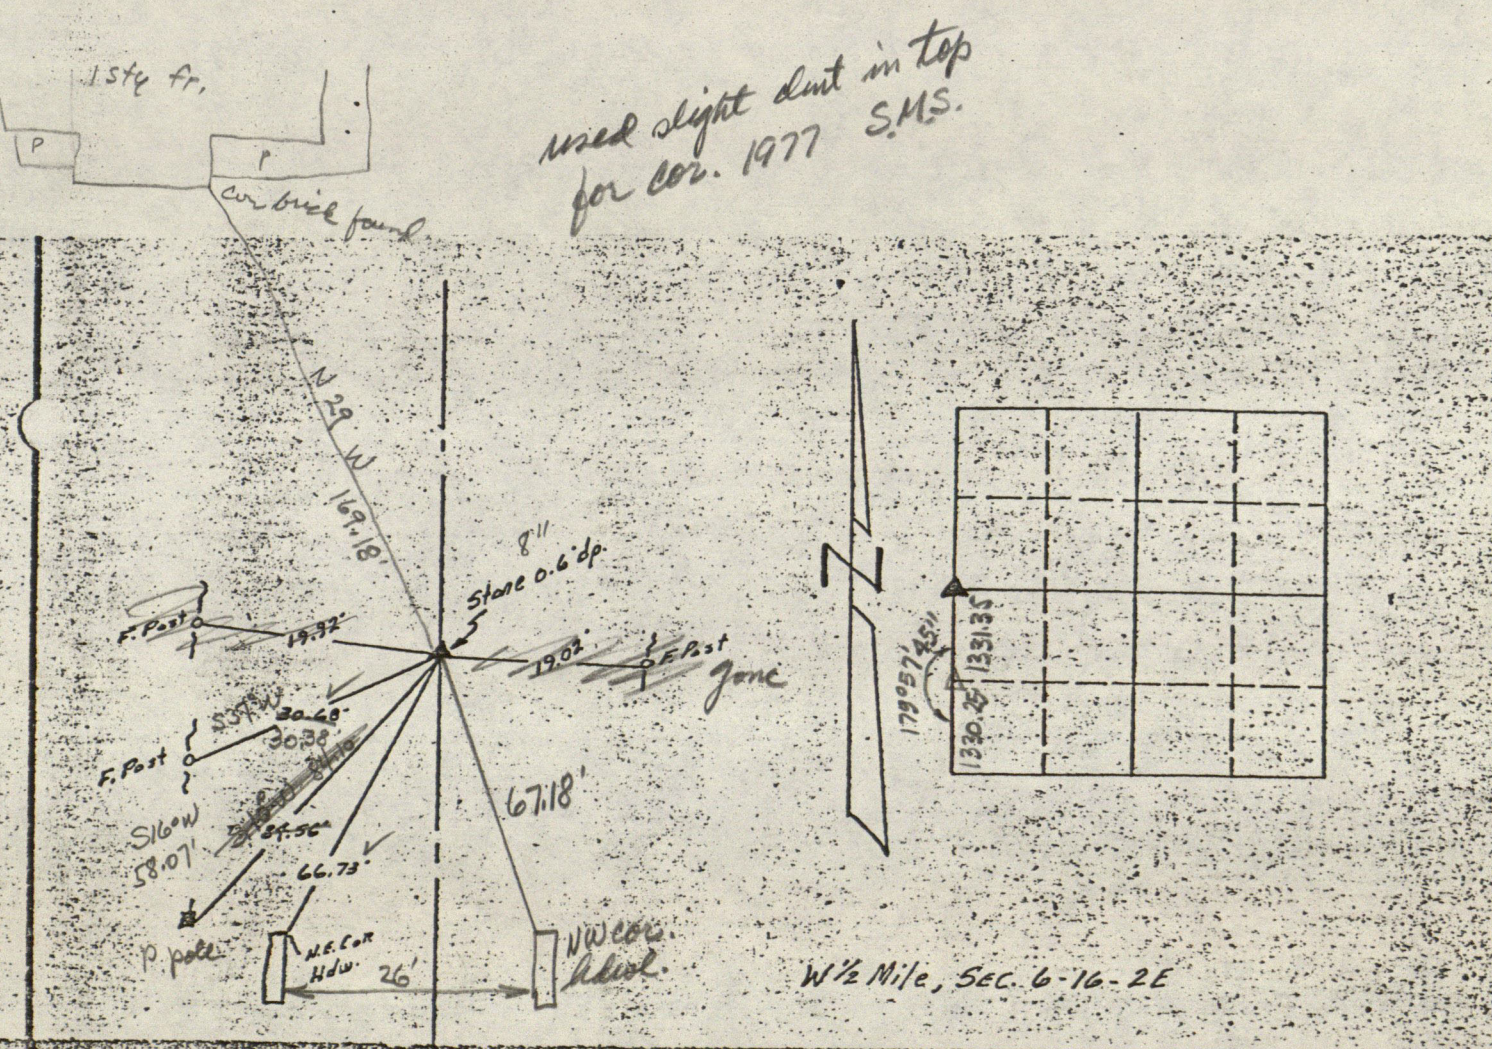 1 sty fr.
P
P
used slight dent in top
for cor. 1977 S.M.S.
cor brick found
N 29 W 169.18'
8"
Stone 0.6' dp.
F. Post
19.92'
19.02'
F. Post
gone
S57°W
30.68'
30.38
F. Post
84.10
S16°W
58.07'
84.56'
66.73'
67.18'
P pole
N.E. Cor
Hdw.
26'
NW cor.
hdwl.
N
179°57'45"
1331.35
1330.25'
W 1/2 Mile, SEC. 6-16-2E